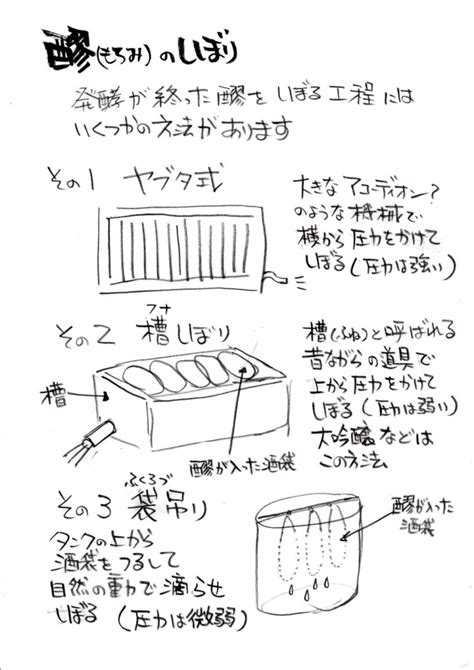 醪(もろみ)のしぼり
発酵が終った醪をしぼる工程には
いくつかの方法があります
その1 ヤブタ式
大きなアコーディオン?
のような機械で
横から圧力をかけて
しぼる(圧力は強い)
フナ
その2 槽しぼり
槽(ふね)と呼ばれる
昔ながらの道具で
上から圧力をかけて
しぼる(圧力は弱い)
大吟醸などは
この方法
槽
醪が入った酒袋
ふくろづ
その3 袋吊り
タンクの上から
酒袋をつるして
自然の重力で滴らせ
しぼる(圧力は微弱)
醪が入った
酒袋